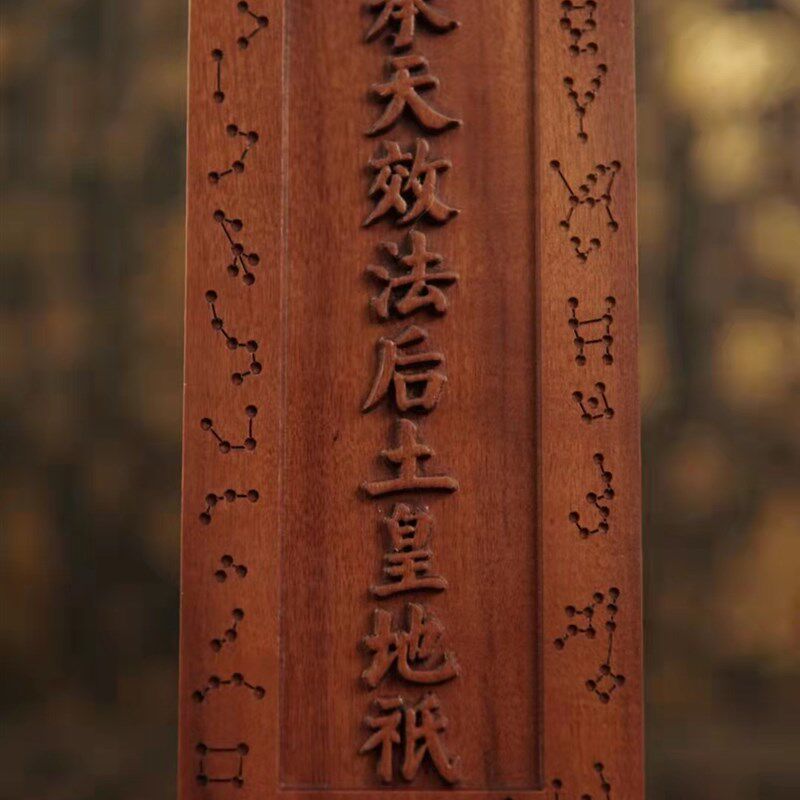 承天效法后土皇地祇